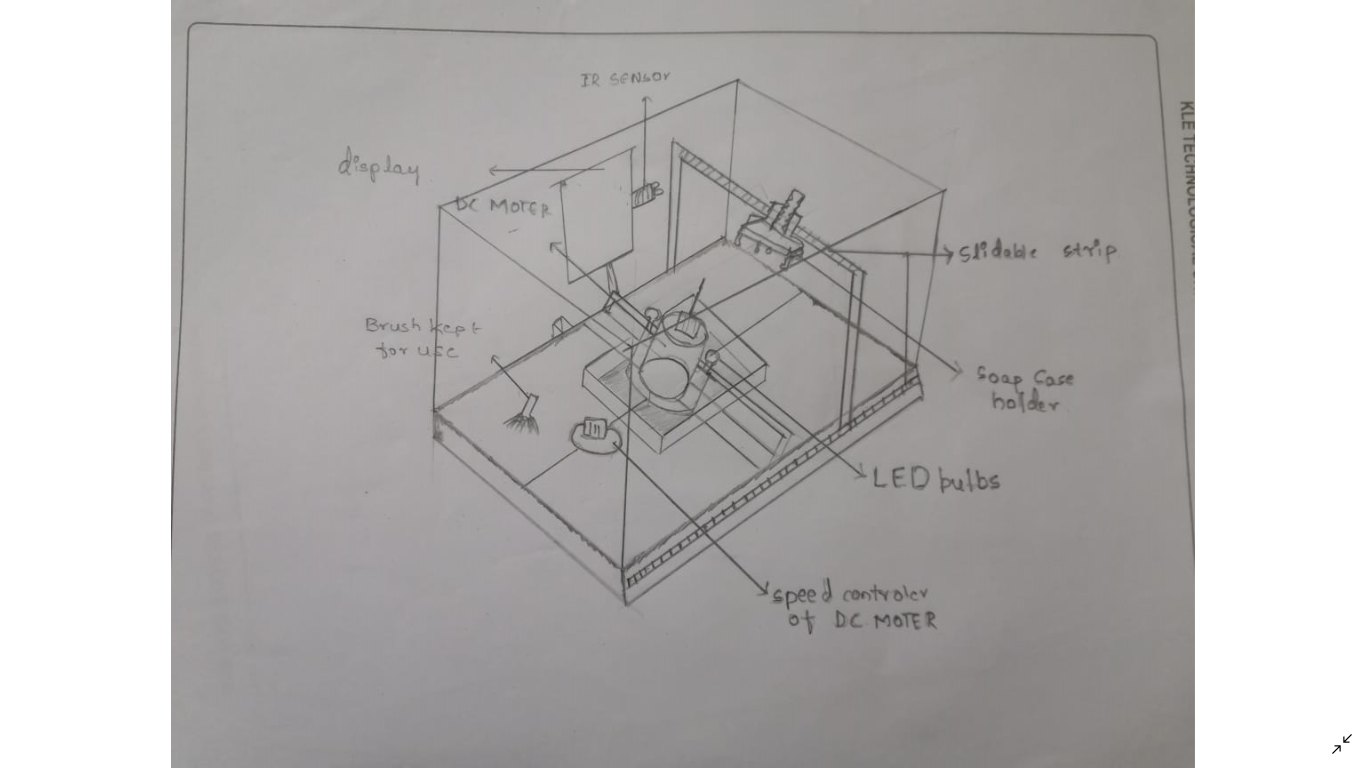 IR SENSOR
display
DC MOTER
Slidable strip
Brush kept
for use
Soap Case
holder
LED bulbs
speed controler
of DC MOTER
KLE TECHNOLOGICAL